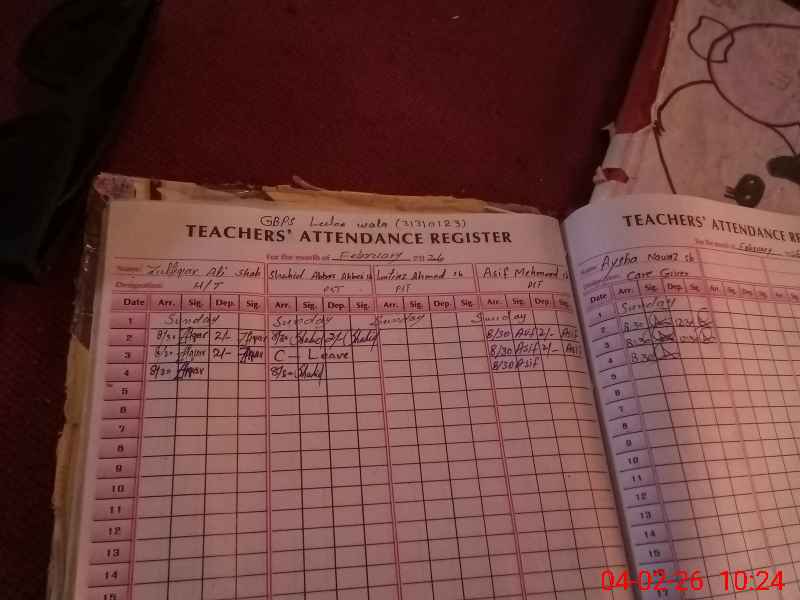 GBPS Leelae wala (31310123)
TEACHERS' ATTENDANCE REGISTER
For the month of February 2026
Name: Zulfiqar Ali Shah Shahid Abbas Ahmed sb Asif Mehmood sb
Designation: H/T PST PST
Date Arr. Sig. Dep. Sig. Arr. Sig. Dep. Sig. Arr. Sig. Dep. Sig. Arr. Sig. Dep. Sig.
1 Sunday Sunday Sunday Sunday
2 8/30 2/- 8/30 Shahid 2/- Shahid 8/30 Asif 2/- Asif
3 8/30 2/- C - Leave 8/30 Asif 2/- Asif
4 8/30 8/30 Shahid 8/30 Asif
5
6
7
8
9
10
11
12
13
14
15
TEACHERS' ATTENDANCE REG
For the month of February
Name: Ayesha Nawaz sb
Care Giver
Date Arr. Sig. Dep. Sig. Arr. Sig. Dep. Sig.
1 Sunday
2 8:30
3 8:30
4 8:30
5
6
7
8
9
10
11
12
13
14
15
04-02-26 10:24